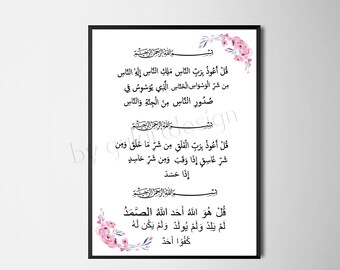 بسم الله الرحمن الرحيم
قُلْ أَعُوذُ بِرَبِّ النَّاسِ مَلِكِ النَّاسِ إِلَٰهِ النَّاسِ
مِن شَرِّ الْوَسْوَاسِ الْخَنَّاسِ الَّذِي يُوَسْوِسُ فِي
صُدُورِ النَّاسِ مِنَ الْجِنَّةِ وَالنَّاسِ
بسم الله الرحمن الرحيم
قُلْ أَعُوذُ بِرَبِّ الْفَلَقِ مِن شَرِّ مَا خَلَقَ وَمِن
شَرِّ غَاسِقٍ إِذَا وَقَبَ وَمِن شَرِّ حَاسِدٍ
إِذَا حَسَدَ
بسم الله الرحمن الرحيم
قُلْ هُوَ اللَّهُ أَحَد اللَّهُ الصَّمَدُ
لَمْ يَلِدْ وَلَمْ يُولَدْ وَلَمْ يَكُن لَّهُ
كُفُوًا أَحَدٌ